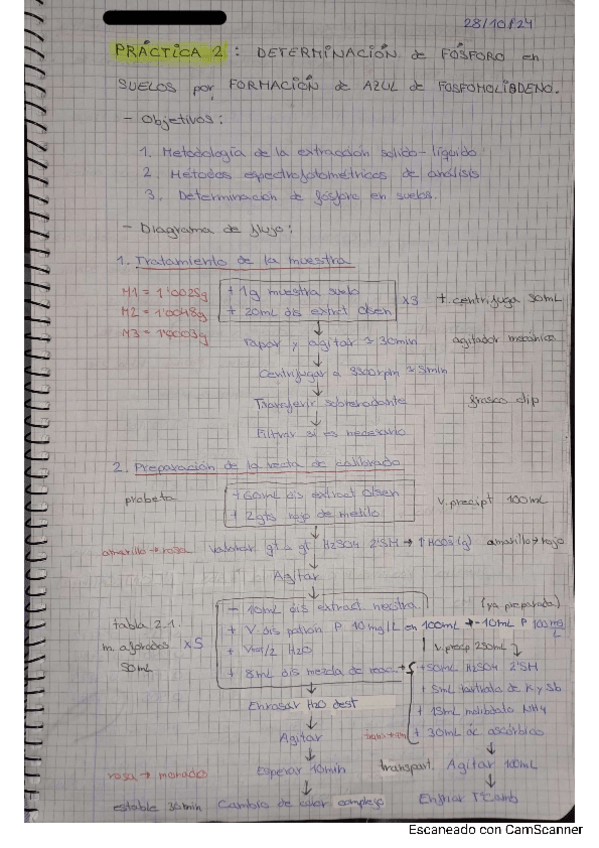 28/10/24
PRÁCTICA 2: DETERMINACIÓN de FÓSFORO en
SUELOS por FORMACIÓN de AZUL DE FOSFOMOLIBDENO.
- Objetivos:
1. Metodología de la extracción sólido-líquido
2. Métodos espectrofotométricos de análisis
3. Determinación de fósforo en suelos.
- Diagrama de flujo:
1. Tratamiento de la muestra
M1 = 1'0025g
+ 1g muestra suelo
M2 = 1'0048g
+ 20mL dis extract Olsen
x3
t. centrífuga 50mL
M3 = 1'0003g
Tapar y agitar ≈ 30min
agitador mecánico
Centrifugar a 3500rpm ≈ 5min
Transferir sobrenadante
frasco dip
Filtrar si es necesario
2. Preparación de la recta de calibrado
probeta
+ 60mL dis extract Olsen
+ 2gts rojo de metilo
v.precipt 100mL
amarillo → rosa
Valorar gt a gt H2SO4 2'5M → ↑ HCO3 (g)
amarillo → rojo
Agitar
tabla 2.1.
m. aforados x5
50mL
- 10mL dis extract neutra
(ya preparada)
+ V dis patrón P 10mg/L en 100mL → 10mL P 100mg/L
+ H2O
v.precp 250mL
+ 8mL dis mezcla de reac
+ 50mL H2SO4 2'5M
+ 5mL tartrato de K y Sb
+ 15mL molibdato NH4
+ 30mL ác ascórbico
Enrasar H2O dest
Agitar
rosa → morado
Esperar 10min
transpart.
Agitar 100mL
estable 30min
Cambio de color complejo
Enfriar TªCamb
Escaneado con CamScanner